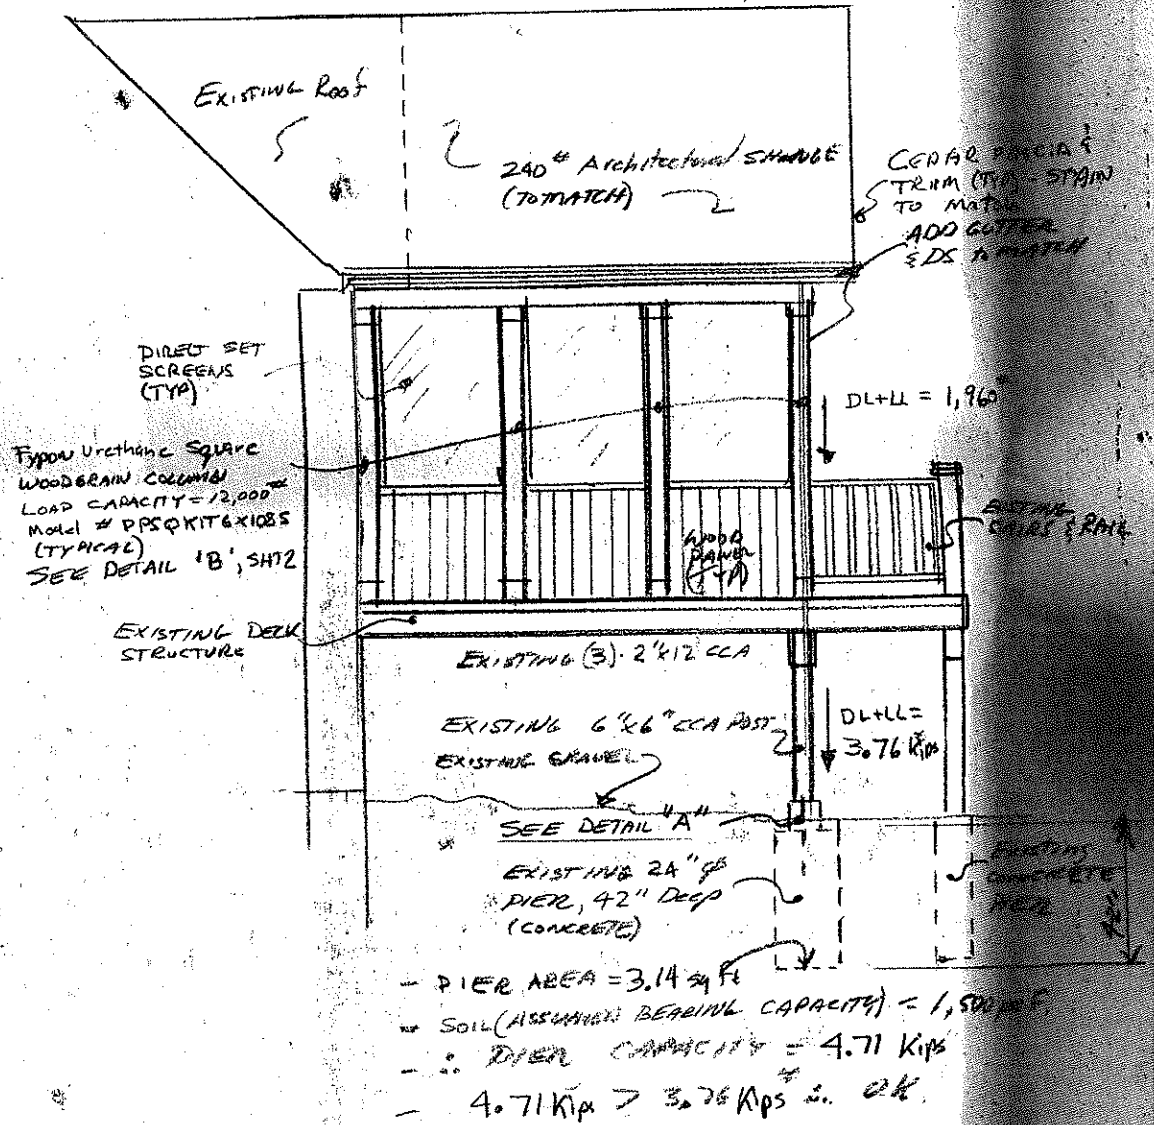 EXISTING Roof
240# Architectural SHINGLE
(TO MATCH)
CEDAR FASCIA &
TRIM (TYP) - STAIN
TO MATCH
ADD GUTTER
& DS to MATCH
DIRECT SET
SCREENS
(TYP)
DL+LL = 1,960#
Fypon Urethane Square
WOODGRAIN COLUMN
LOAD CAPACITY = 12,000#
Model # PPSQKIT6X108S
(TYPICAL)
SEE DETAIL 'B', SHT2
WOOD
PANEL
(TYP)
EXISTING
STAIRS & RAIL
EXISTING DECK
STRUCTURE
EXISTING (3)-2"x12 CCA
EXISTING 6"x6" CCA POST
EXISTING GRAVEL
DL+LL =
3.76 Kips
SEE DETAIL "A"
EXISTING 24" ø
PIER, 42" Deep
(CONCRETE)
EXISTING
CONCRETE
PIER
42"
- PIER AREA = 3.14 sq Ft
- SOIL (ASSUMED BEARING CAPACITY) = 1,500 PSF
- ∴ PIER CAPACITY = 4.71 Kips
- 4.71 Kips > 3.76 Kips ∴ OK